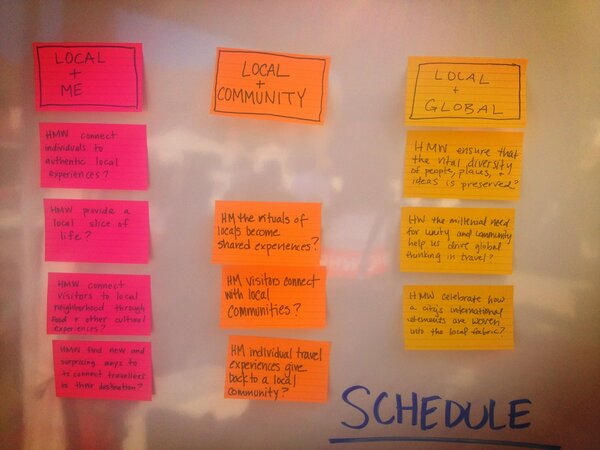 LOCAL
+
ME
HMW connect
individuals to
authentic local
experiences?
HMW provide a
local slice of
life?
HMW connect
visitors to local
neighborhood through
food + other cultural
experiences?
HMW find new and
surprising ways to
to connect travellers
to their destination?
LOCAL
+
COMMUNITY
HM the rituals of
locals become
shared experiences?
HM visitors connect
with local
communities?
HM individual travel
experiences give
back to a local
community?
LOCAL
+
GLOBAL
HMW ensure that
the vital diversity
of people, places, +
ideas is preserved?
HW the millenial need
for unity and community
help us drive global
thinking in travel?
HMW celebrate how
a city's international
elements are woven
into the local fabric?
SCHEDULE